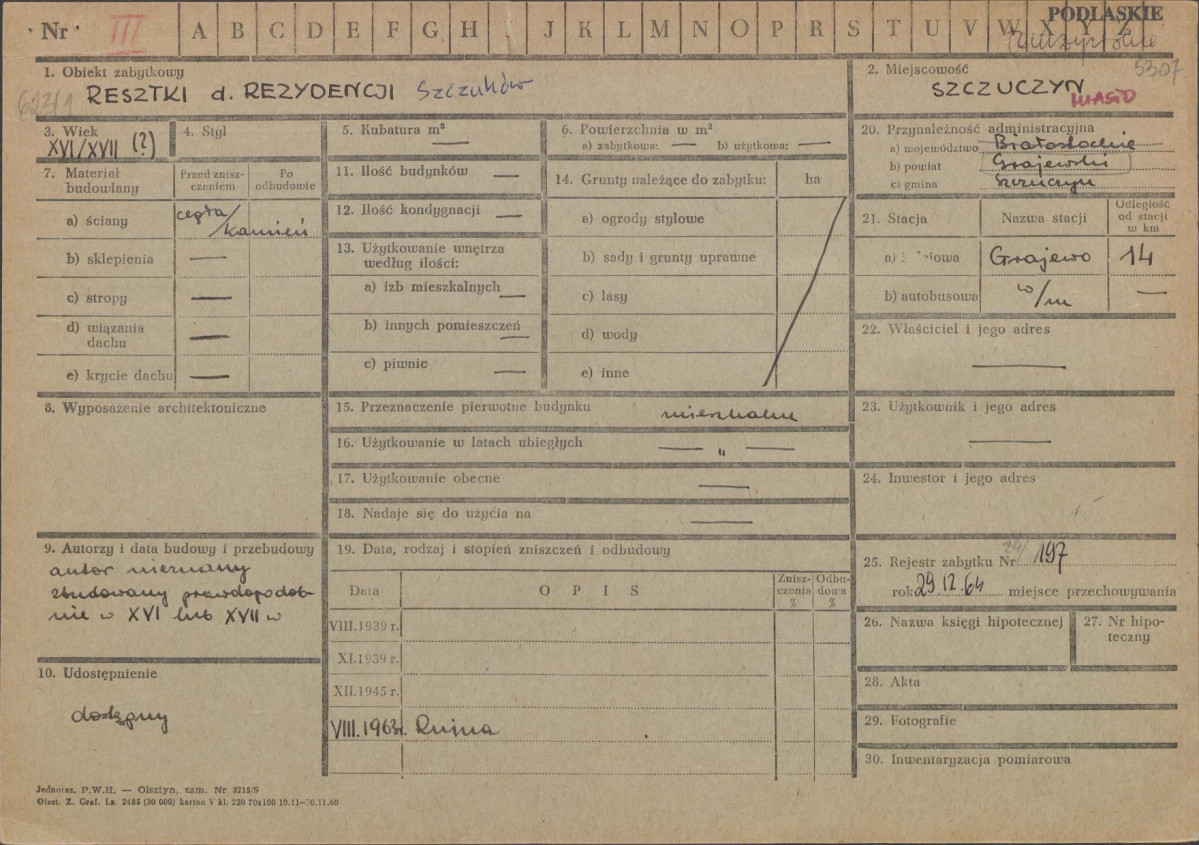 Nr III A B C D E F G H I J K L M N O P R S T U V W X Y Z
PODLASKIE
622/1
5307
1. Obiekt zabytkowy
RESZTKI d. REZYDENCJI Szczuków
2. Miejscowość
SZCZUCZYN
MIASTO
3. Wiek
XVI/XVII (?)
4. Styl
5. Kubatura m³ —
6. Powierzchnia w m²
a) zabytkowa: — b) użytkowa: —
20. Przynależność administracyjna
a) województwo Białostockie
b) powiat Grajewski
c) gmina Szczuczyn
7. Materiał budowlany
Przed zniszczeniem
Po odbudowie
a) ściany cegła/kamień
b) sklepienia —
c) stropy —
d) wiązania dachu —
e) krycie dachu —
11. Ilość budynków —
12. Ilość kondygnacji —
13. Użytkowanie wnętrza
według ilości:
a) izb mieszkalnych —
b) innych pomieszczeń —
c) piwnic —
14. Grunty należące do zabytku: ha
a) ogrody stylowe
b) sady i grunty uprawne
c) lasy
d) wody
e) inne
21. Stacja
Nazwa stacji
Odległość
od stacji
w km
Grajewo 14
b) autobusowa w/m —
22. Właściciel i jego adres
—
8. Wyposażenie architektoniczne
15. Przeznaczenie pierwotne budynku mieszkalne
16. Użytkowanie w latach ubiegłych — „ —
17. Użytkowanie obecne —
18. Nadaje się do użycia na —
23. Użytkownik i jego adres
—
24. Inwestor i jego adres
9. Autorzy i data budowy i przebudowy
autor nieznany
zbudowany prawdopodob-
nie w XVI lub XVII w
19. Data, rodzaj i stopień zniszczeń i odbudowy
Data
O P I S
Znisz-
czenia
%
Odbu-
dowa
%
VIII.1939 r.
XI.1939 r.
XII.1945 r.
VIII.1963r. Ruina
25. Rejestr zabytku Nr 197
rok 29.12.64 miejsce przechowywania
26. Nazwa księgi hipotecznej
27. Nr hipo-
teczny
10. Udostępnienie
dostępny
28. Akta
29. Fotografie
30. Inwentaryzacja pomiarowa
Jednoraz. P.W.H. — Olsztyn, zam. Nr 3215/S
Olszt. Z. Graf. Lz. 2485 (30 000) karton V kl. 220 70x100 10.11—30.11.60